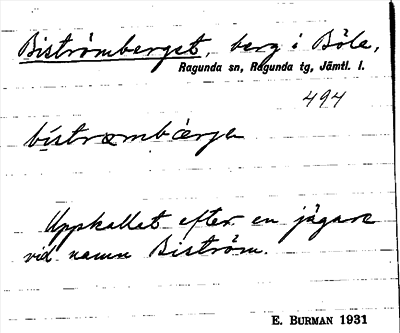 Biströmberget, berg i Böle,
Ragunda sn, Ragunda tg, Jämtl. l.
494
bistrømbærjə
Uppkallat efter en jägare
vid namn Biström.
E. BURMAN 1931